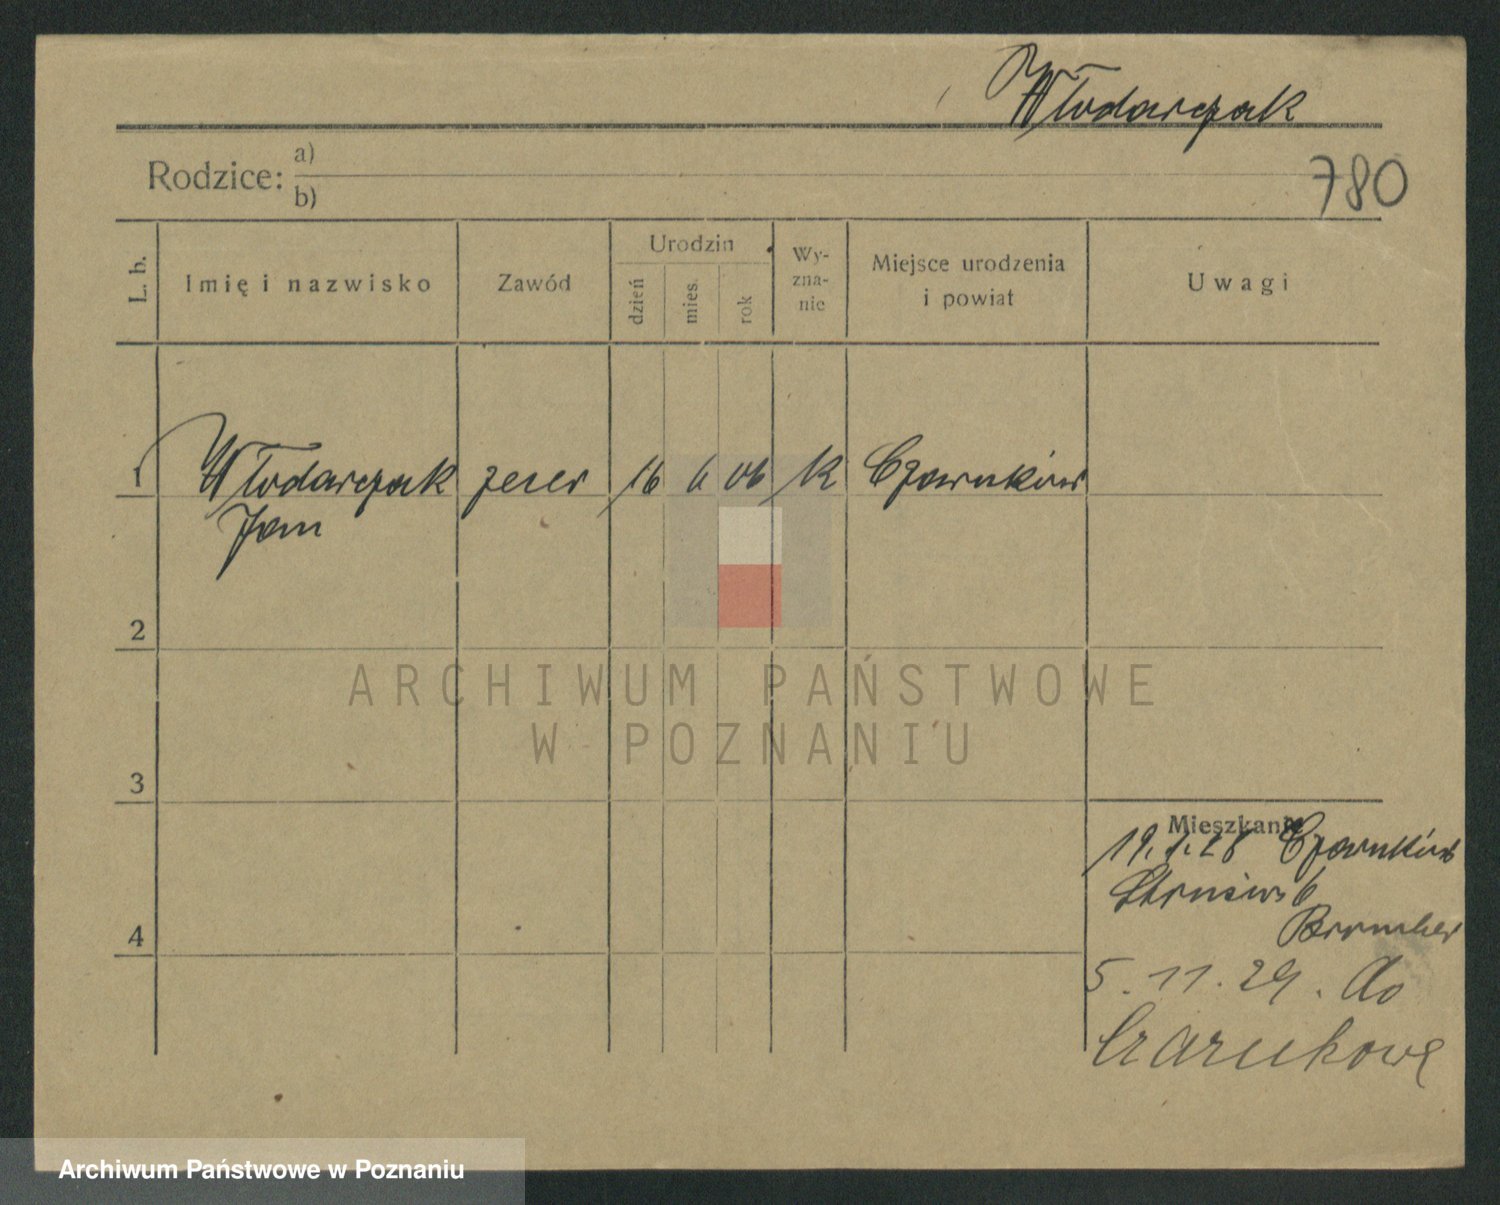 Włodarczak
780
Rodzice: a)
b)
L. b.
Imię i nazwisko
Zawód
Urodzin
dzień
mies.
rok
Wy-
zna-
nie
Miejsce urodzenia
i powiat
Uwagi
1 Włodarczak zecer 16 6 06 k Czarnków
Jan
2
3
4
Mieszkanie
Czarnków
5.11.29. do
Czarnkowa
ARCHIWUM PAŃSTWOWE
W POZNANIU
Archiwum Państwowe w Poznaniu